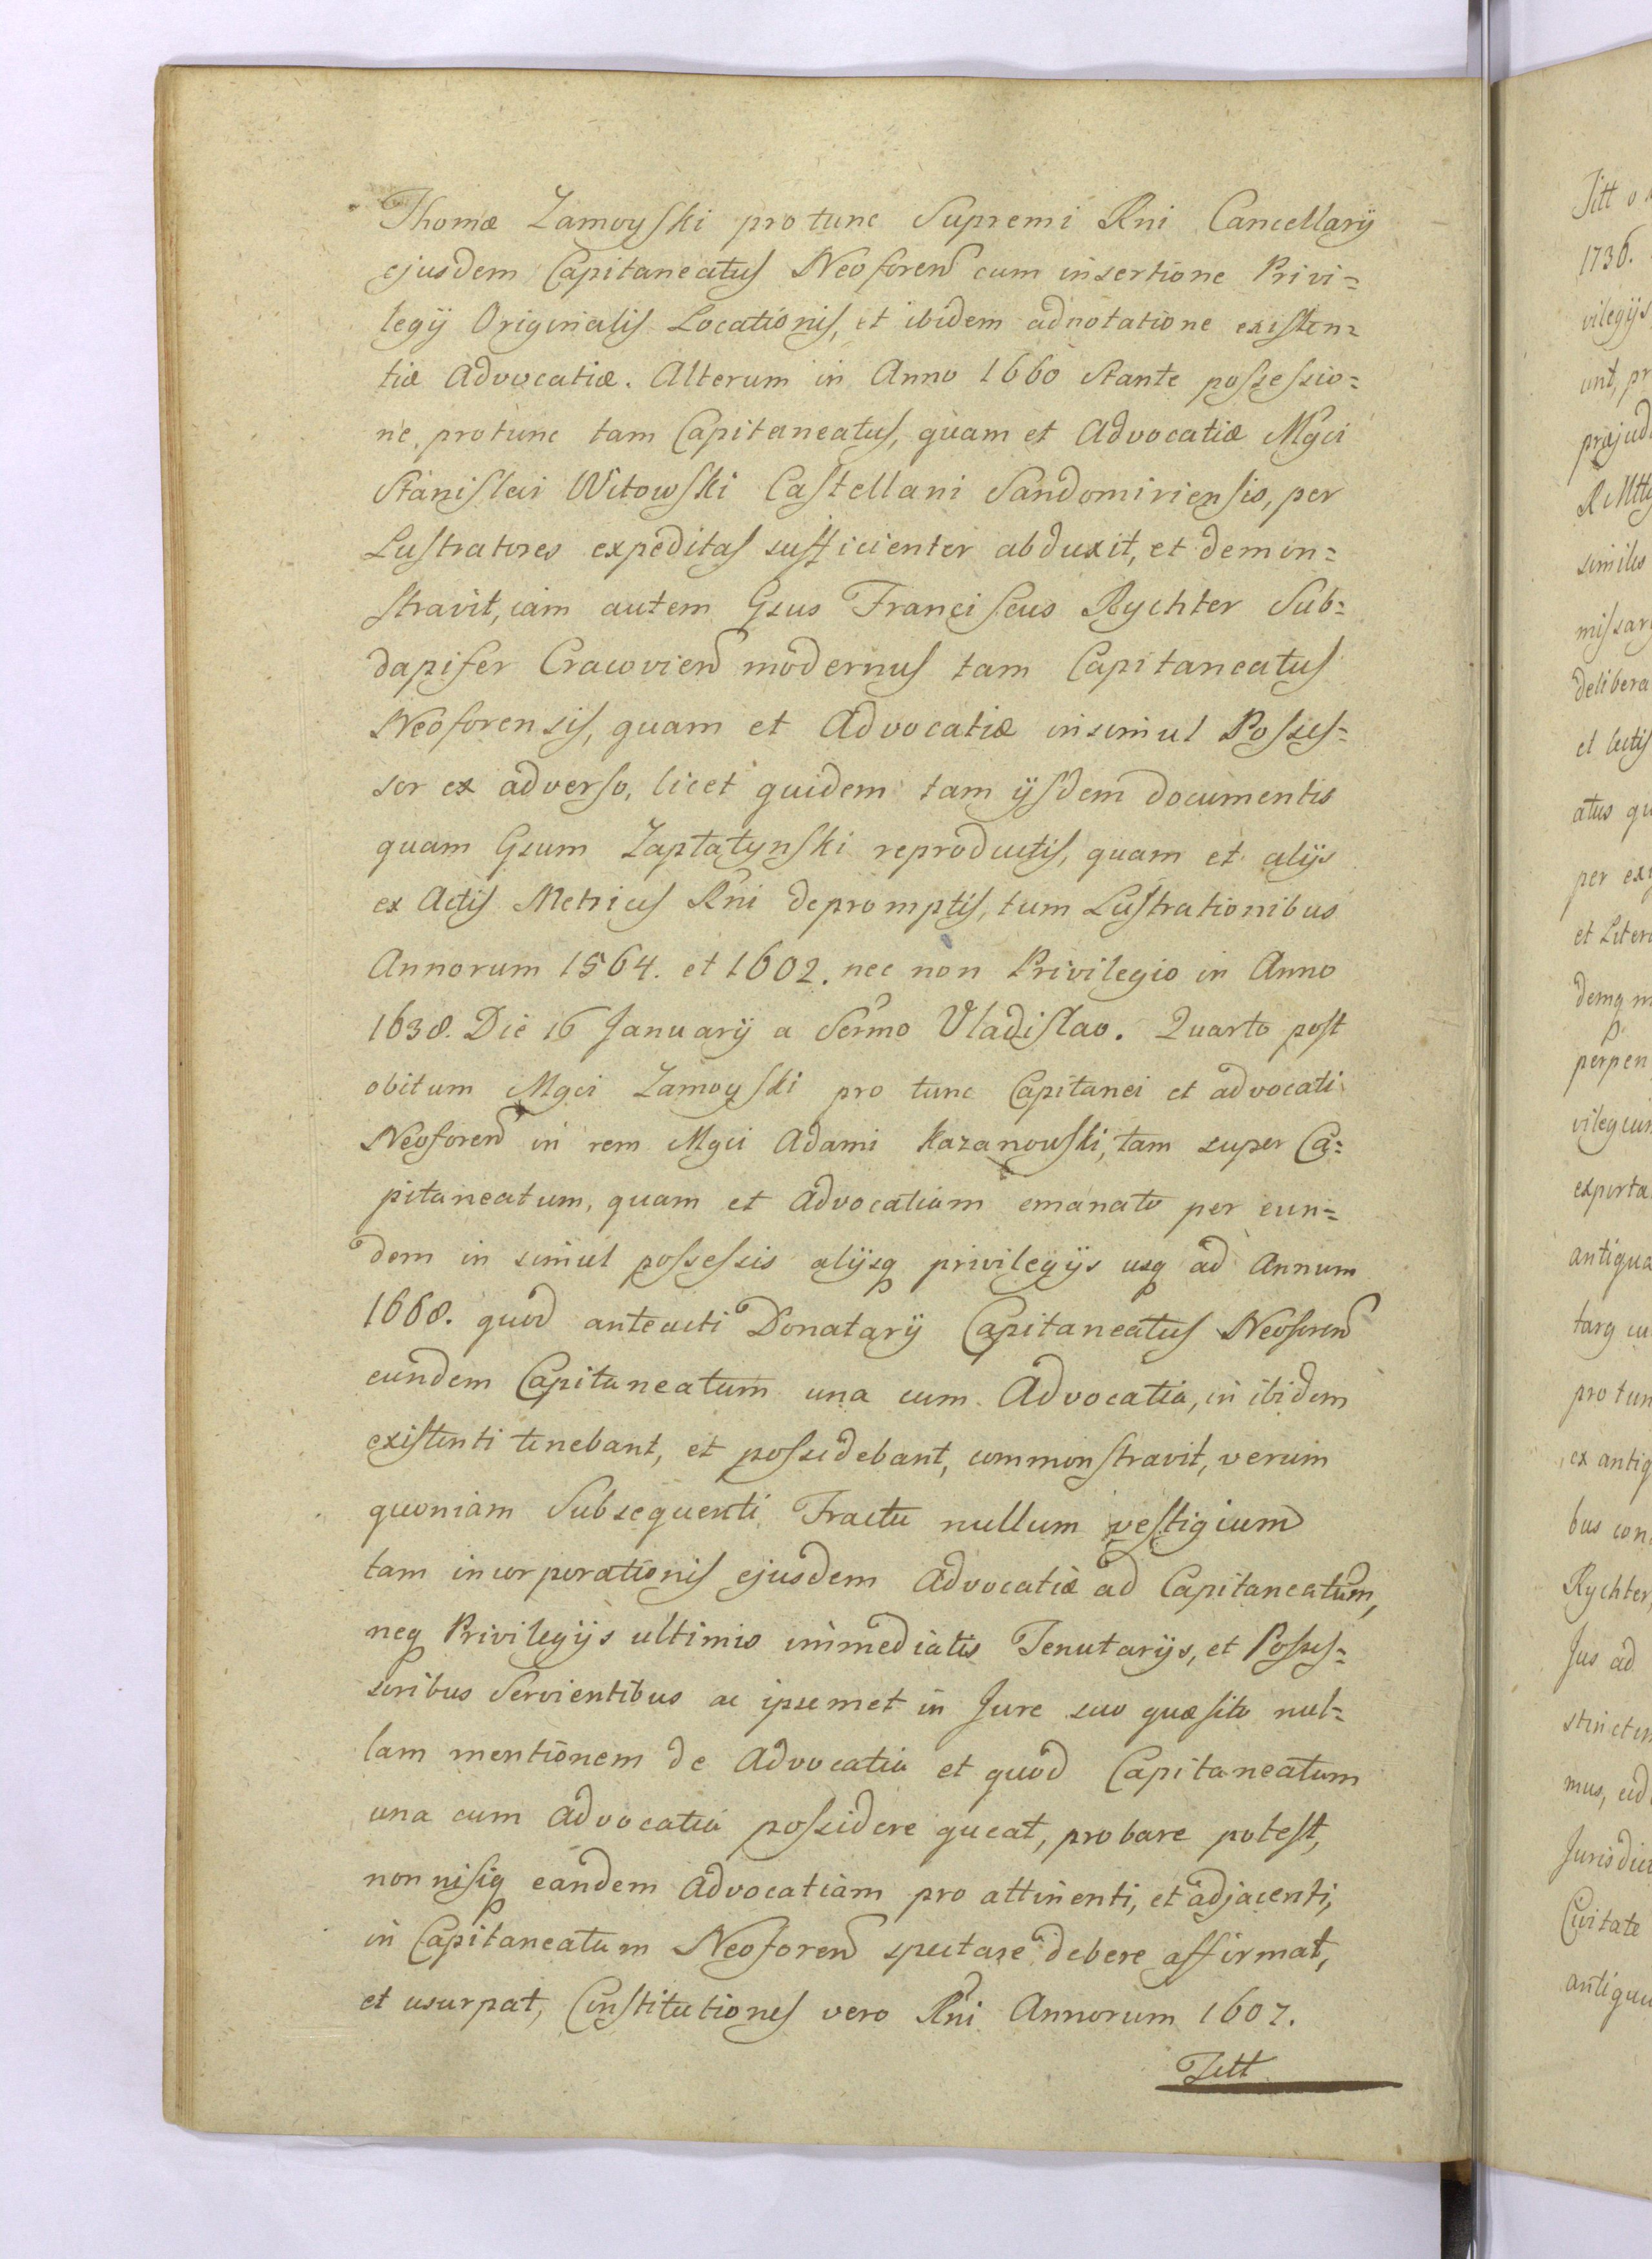 Thomæ Zamoyski pro tunc Supremi Rni Cancellarÿ
ejusdem Capitaneatus Neoforen cum insertione Privi=
legÿ Originalis Locationis, et ibidem adnotatione existen=
tiæ Advocatiæ. Alterum in Anno 1660 stante possessio=
ne, protunc tam Capitaneatus, quam et Advocatiæ Mgci
Stanislai Witowski Castellani Sandomiriensis, per
Lustratores expeditas sufficienter abduxit, et demon=
stravit, iam autem Gsus Franciscus Rychter Sub=
dapifer Cracovien modernus tam Capitaneatus
Neoforensis, quam et Advocatiæ insimul Posses=
sor ex adverso, licet quidem tam ÿsdem documentis
quam Gsum Zaptatynski reproductis, quam et alÿs
ex Actis Metrices Rni depromptis, tum Lustrationibus
Annorum 1564. et 1602. nec non Privilegio in Anno
1638. Die 16 Januarÿ a Sermo Vladislao. Quarto post
obitum Mgci Zamoyski pro tunc Capitanei et advocati
Neoforen in rem Mgci Adami Kazanowski, tam super Ca=
pitaneatum, quam et Advocatiam emanato per eun=
dem in simul possessis alÿsq privilegÿs usq ad Annum
1668. quod anteacti Donatarÿ Capitaneatus Neoforen
eundem Capitaneatum una cum Advocatia, in ibidem
existenti tenebant, et possidebant, commonstravit, verum
quoniam Subsequenti Tractu nullum vestigium
tam incorporationis ejusdem Advocatiæ ad Capitaneatum,
neq Privilegÿs ultimis immediatis Tenutarÿs, et Posses=
soribus Servientibus ac ipsemet in Jure suo quæsito nul=
lam mentionem de Advocatia et quod Capitaneatum
una cum Advocatia possidere queat, probare potest,
non nisiq eandem Advocatiam pro attinenti, et adjacenti,
in Capitaneatum Neoforen spectare debere affirmat,
et usurpat, Constitutiones vero Rni Annorum 1607.
Titt
1736.
vilegÿs
unt, pr
præjud
similis
delibera
et lectis
atus qu
per ex
perpen
antiqua
pro tun
ex antiq
Rychter,
Jus ad
Civitate